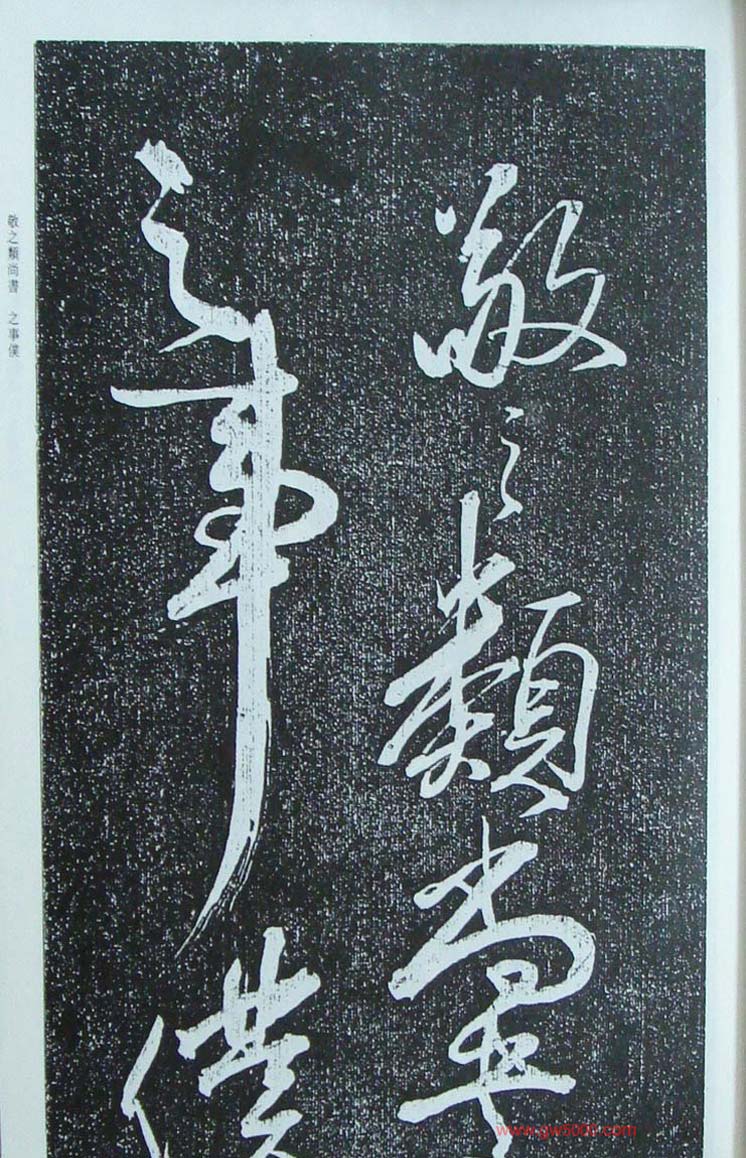 敬之類尚書
之事僕
敬之類尚書　之事僕
www.gw5000.com